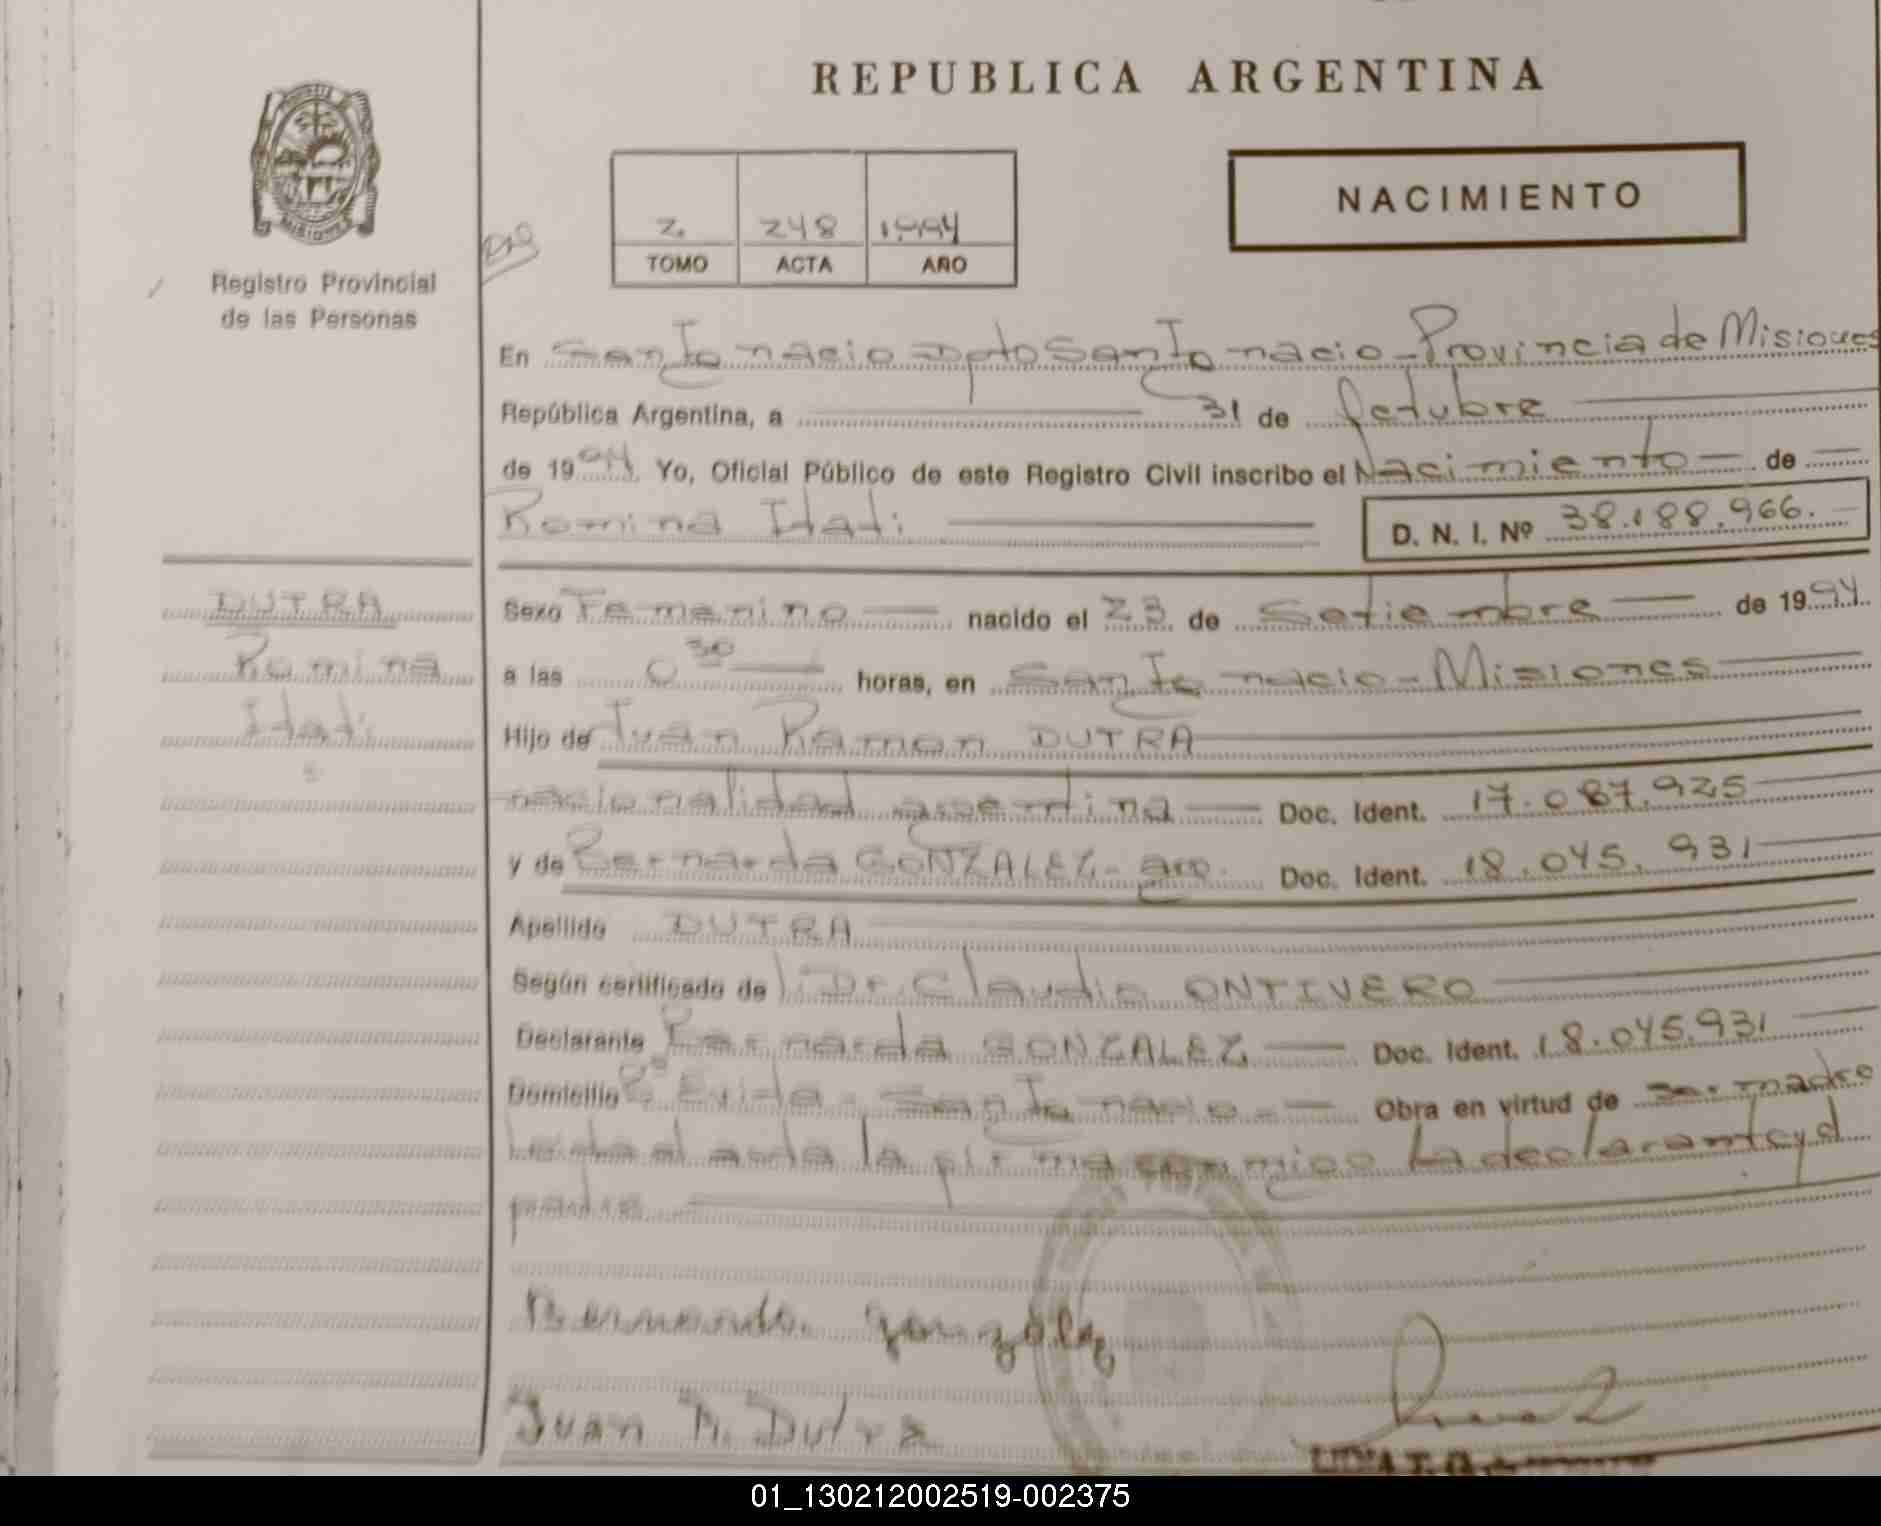 REPUBLICA ARGENTINA
NACIMIENTO
2. 248 1994
TOMO ACTA AÑO
MISIONES
Registro Provincial
de las Personas
En San Ignacio Dpto San Ignacio - Provincia de Misiones
República Argentina, a 31 de Octubre
de 1994 Yo, Oficial Público de este Registro Civil inscribo el Nacimiento de
Romina Itati
D. N. I. Nº 38.188.966.
DUTRA
Romina
Itati
Sexo Femenino nacido el 23 de Setiembre de 1994
a las 0 30 horas, en San Ignacio - Misiones
Hijo de Juan Ramon DUTRA
nacionalidad argentina Doc. Ident. 17.087.925
y de Bernarda GONZALEZ - arg. Doc. Ident. 18.045.931
Apellido DUTRA
Según certificado de Dr. Claudio ONTIVERO
Declarante Bernarda GONZALEZ Doc. Ident. 18.045.931
Domicilio Bº Evida - San Ignacio - Obra en virtud de ser madre
Leida el acta la firma conmigo la declarante y el
padre
Bernarda Gonzalez
Juan R. Dutra
01_130212002519-002375